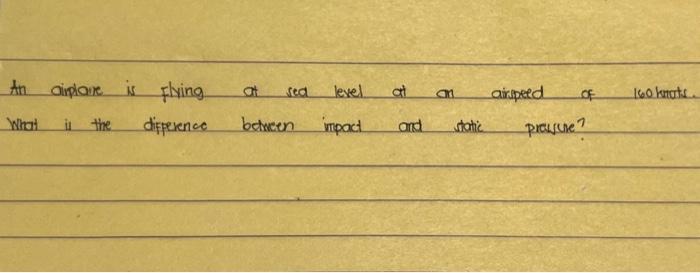 An airplane is flying at sea level at an airspeed of 160 knots.
What is the difference between impact and static pressure?